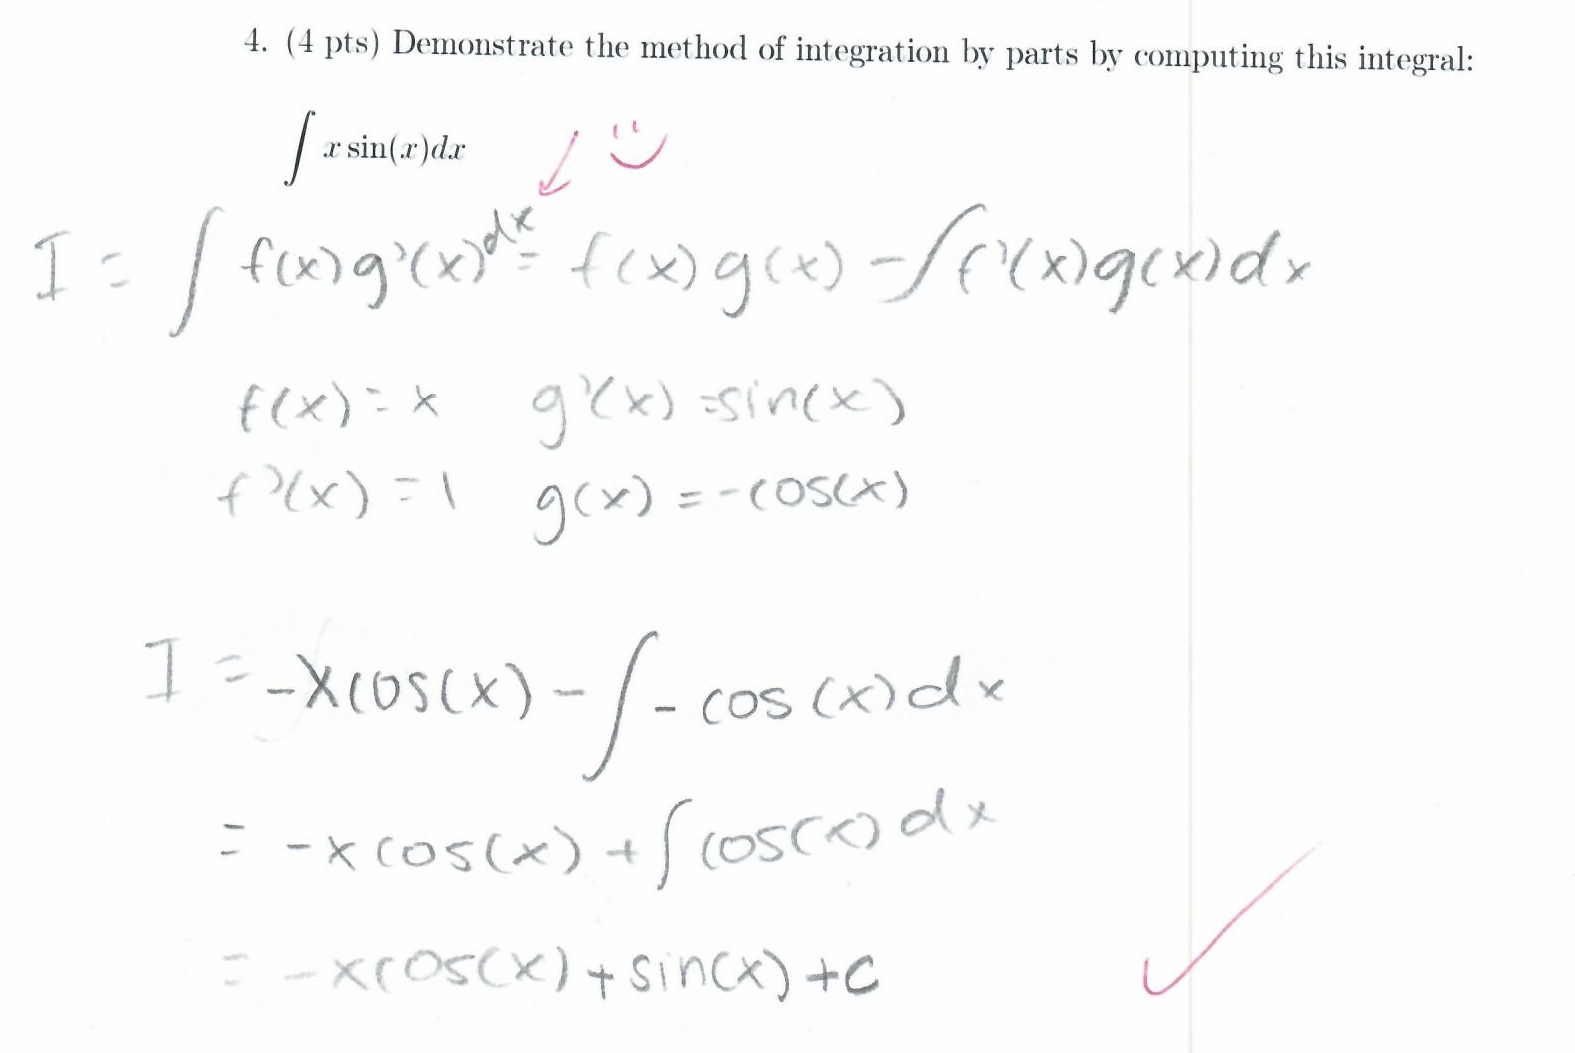 4. (4 pts) Demonstrate the method of integration by parts by computing this integral:
∫ x sin(x)dx
I = ∫ f(x)g'(x)dx = f(x)g(x) - ∫f'(x)g(x)dx
f(x) = x g'(x) = sin(x)
f'(x) = 1 g(x) = -cos(x)
I = -xcos(x) - ∫ - cos(x)dx
= -xcos(x) + ∫cos(x)dx
= -xcos(x) + sin(x) + C